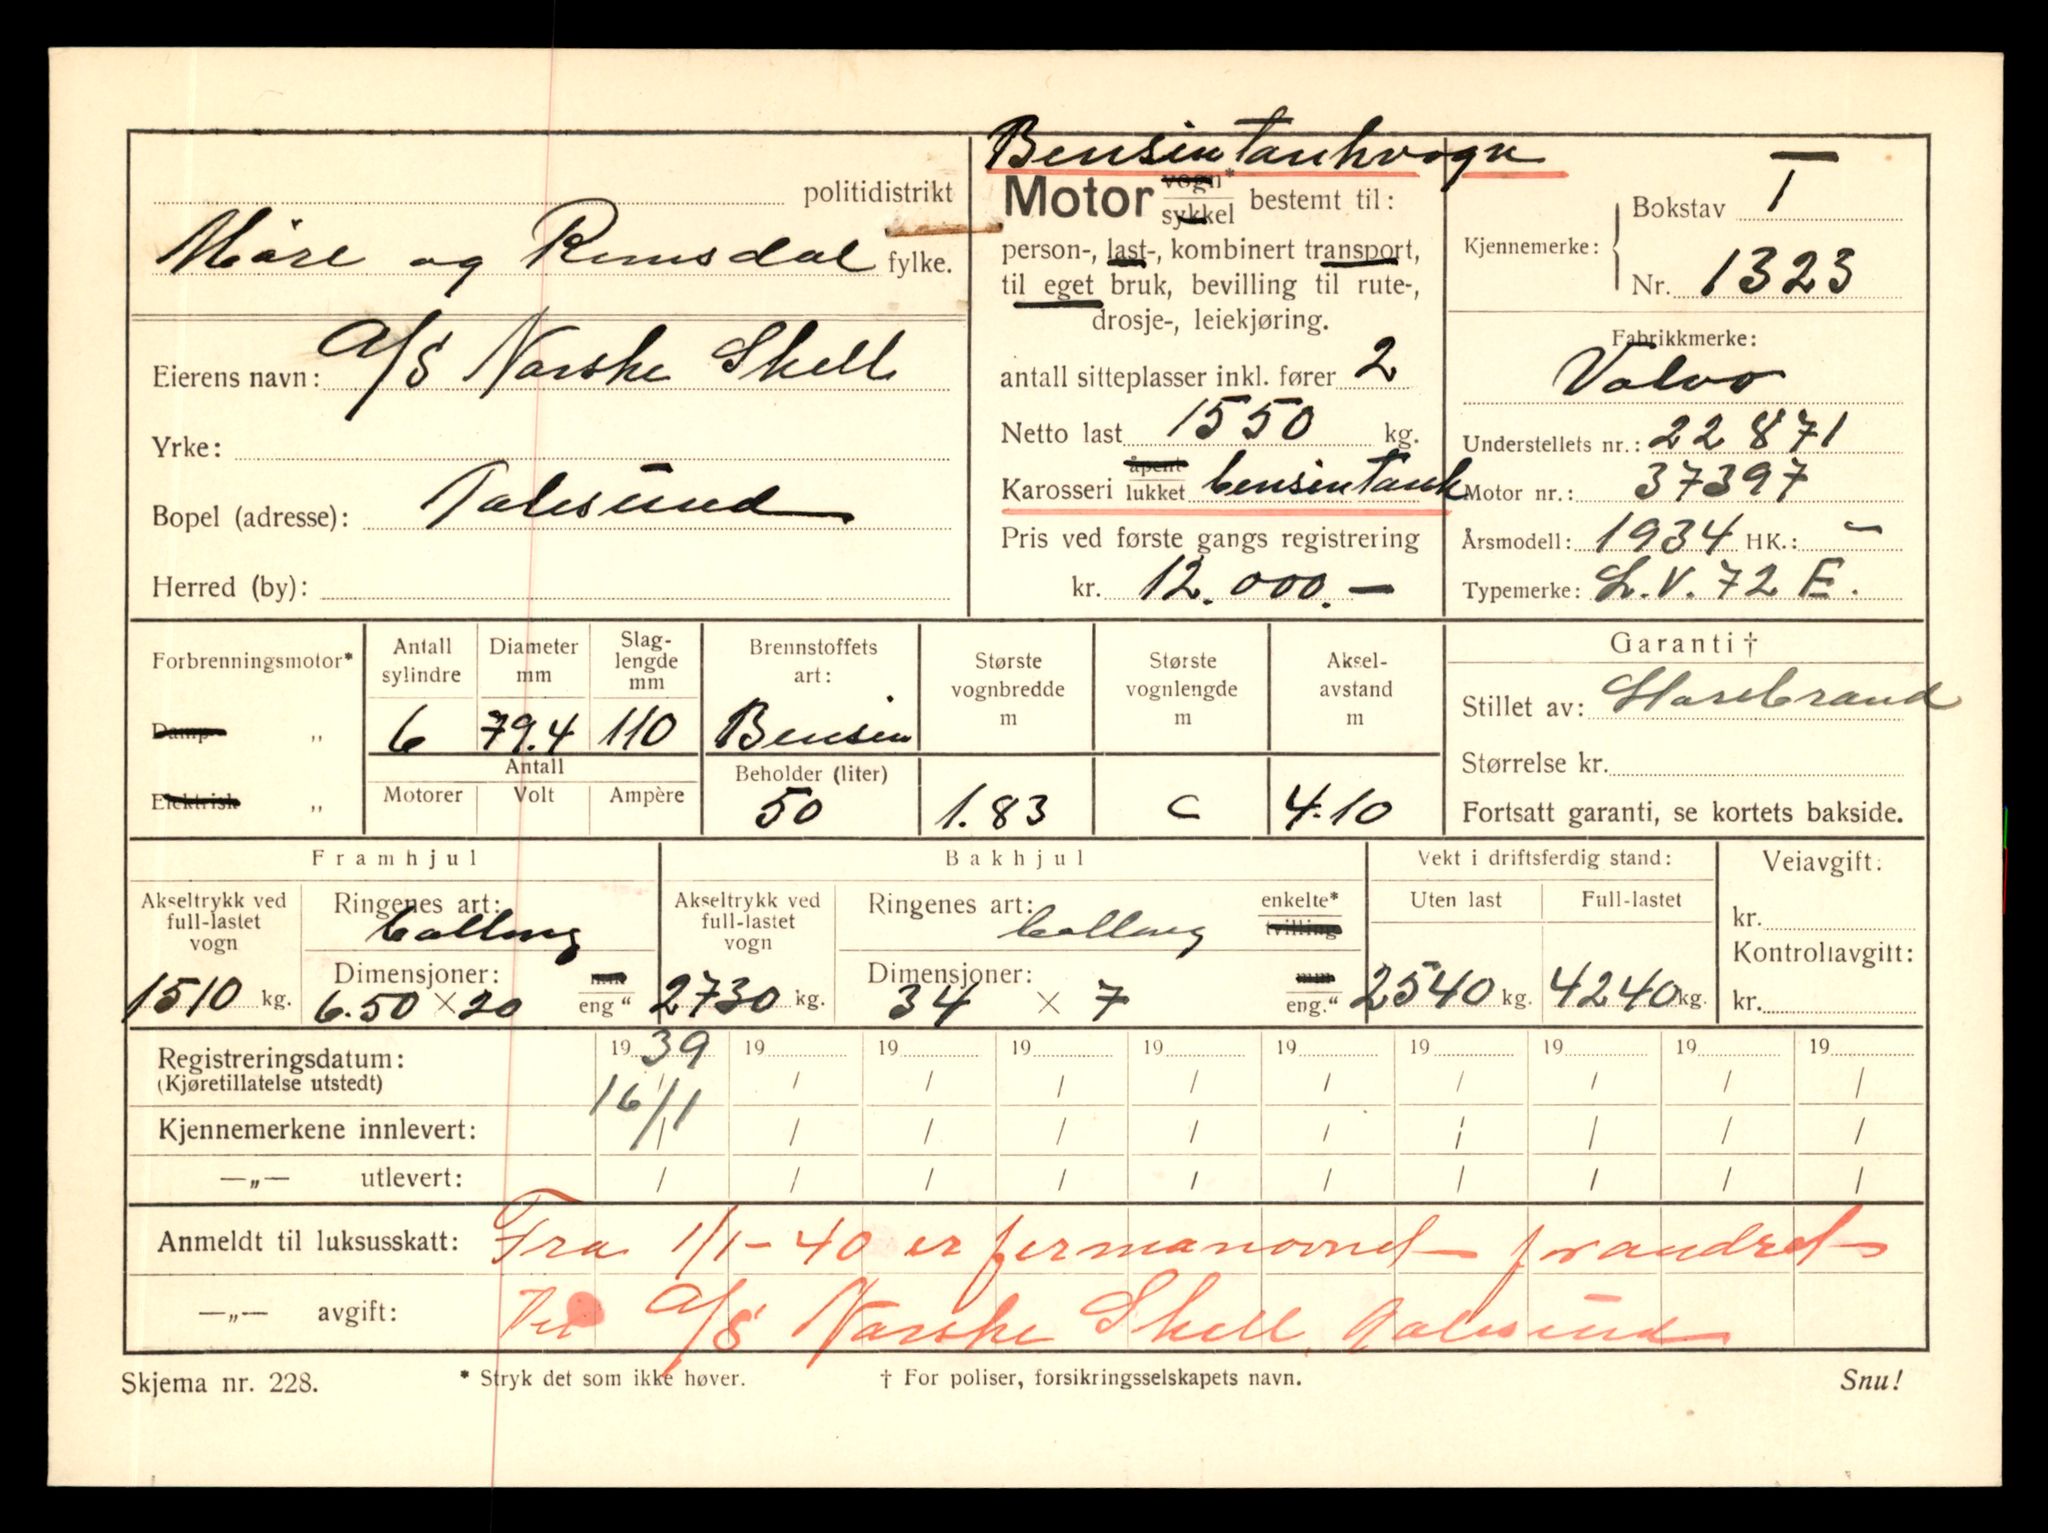 politidistrikt
Möre og Romsdal fylke.
Eierens navn: A/S Norske Shell
Yrke:
Bopel (adresse): Aalesund
Herred (by):
Bensintankvogn
Motor vogn* sykkel bestemt til:
person-, last-, kombinert transport,
til eget bruk, bevilling til rute-,
drosje-, leiekjøring.
antall sitteplasser inkl. fører 2
Netto last 1550 kg.
Karosseri åpent lukket bensintank
Pris ved første gangs registrering
kr. 12.000.-
Kjennemerke: Bokstav T
Nr. 1323
Fabrikkmerke:
Volvo
Understellets nr.: 22871
Motor nr.: 37397
Årsmodell: 1934 HK.: -
Typemerke: L.V. 72 E.
Forbrenningsmotor*
Damp „
Elektrisk „
Antall sylindre
Diameter mm
Slag-lengde mm
6 79.4 110
Antall
Motorer Volt Ampère
Brennstoffets art:
Bensin
Beholder (liter)
50
Største vognbredde m
1.83
Største vognlengde m
Aksel-avstand m
4.10
Garanti †
Stillet av: Storebrand
Størrelse kr.
Fortsatt garanti, se kortets bakside.
Framhjul
Akseltrykk ved full-lastet vogn
1510 kg.
Ringenes art:
ballong
Dimensjoner: mm
6.50 × 20 eng“
Bakhjul
Akseltrykk ved full-lastet vogn
2730 kg.
Ringenes art: enkelte* tvilling
ballong
Dimensjoner: mm
34 × 7 eng.“
Vekt i driftsferdig stand:
Uten last Full-lastet
2540 kg. 4240 kg.
Veiavgift:
kr.
Kontrollavgift:
kr.
Registreringsdatum: 1939 19 19 19 19 19 19 19 19 19
(Kjøretillatelse utstedt) 16/1 / / / / / / / / /
Kjennemerkene innlevert: / / / / / / / / / /
—„— utlevert: / / / / / / / / / /
Anmeldt til luksusskatt: Fra 1/1-40 er fermanovnet forandret
—„— avgift: til A/S Norske Shell, Aalesund
Skjema nr. 228.
* Stryk det som ikke høver.
† For poliser, forsikringsselskapets navn.
Snu!